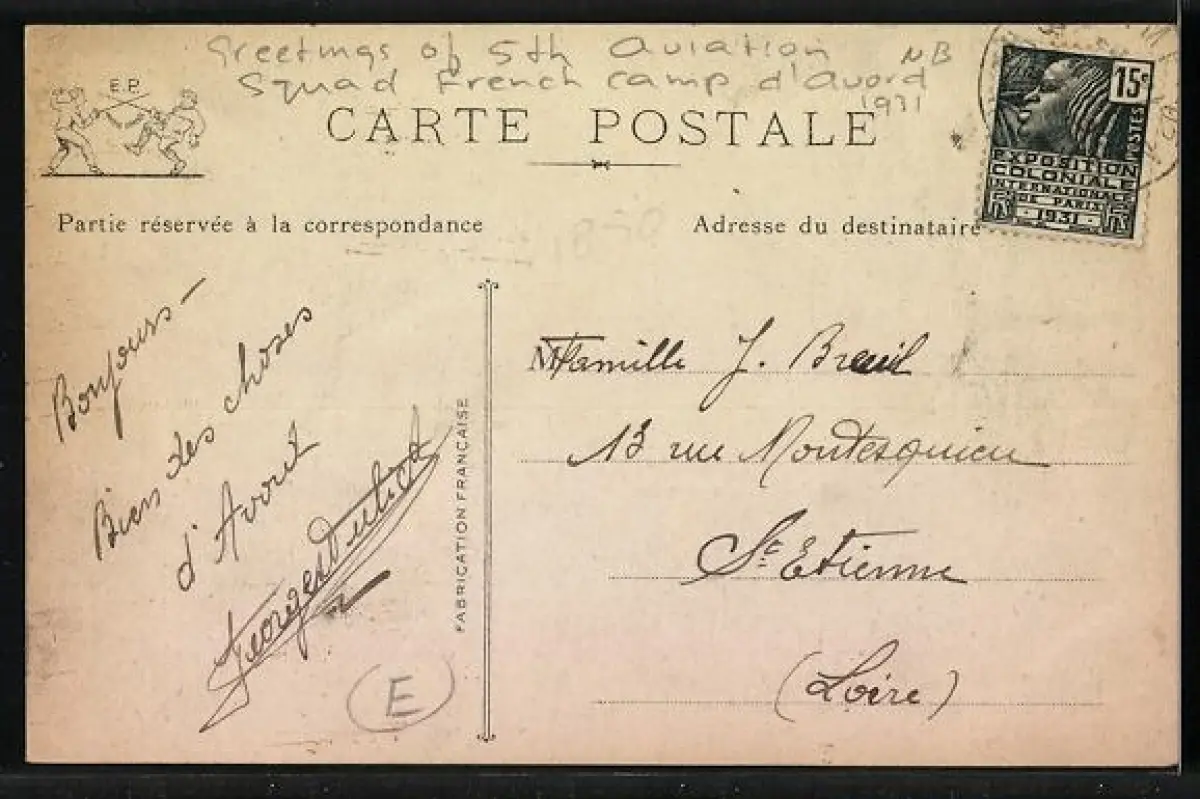 Greetings of 5th Aviation NB
Squad French camp d'avord
1931
E.P.
CARTE POSTALE
15c
POSTES
EXPOSITION
COLONIALE
INTERNATIONALE
DE PARIS
1931
Partie réservée à la correspondance
Adresse du destinataire
Bonjours —
Bien des choses
d'Avord
Georges
E
FABRICATION FRANÇAISE
M Famille J. Breuil
13 rue Montesquieu
St Etienne
(Loire)